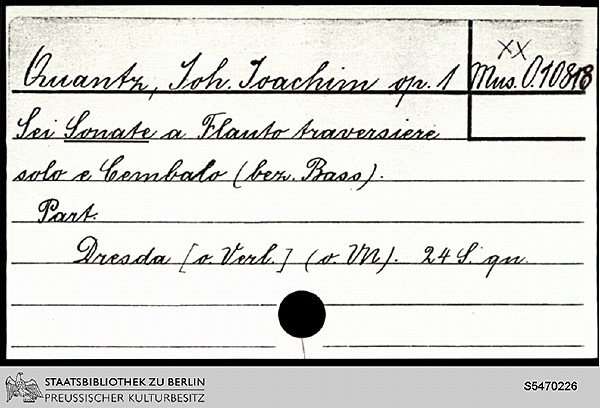 XX
Quantz, Joh. Joachim op. 1 Mus. O.10818
Sei Sonate a Flauto traversiere
solo e Cembalo (bez. Bass).
Part.
Dresda [o. Verl.] (o. VN). 24 S. qu.
STAATSBIBLIOTHEK ZU BERLIN
PREUSSISCHER KULTURBESITZ
S5470226